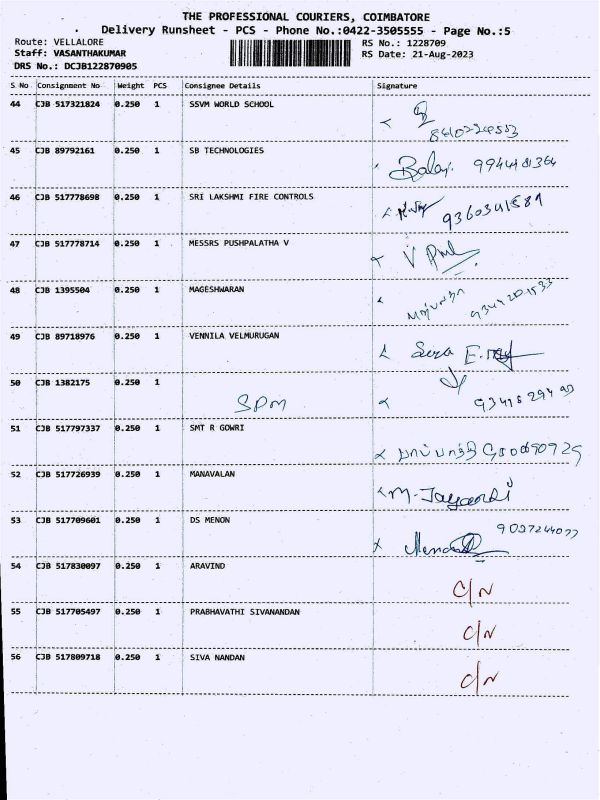 THE PROFESSIONAL COURIERS, COIMBATORE
Delivery Runsheet - PCS - Phone No.:0422-3505555 - Page No.:5
Route: VELLALORE RS No.: 1228709
Staff: VASANTHAKUMAR RS Date: 21-Aug-2023
DRS No.: DCJB122870905
S No Consignment No Weight PCS Consignee Details Signature
44 CJB 517321824 0.250 1 SSVM WORLD SCHOOL
45 CJB 89792161 0.250 1 SB TECHNOLOGIES
Balaji
46 CJB 517778698 0.250 1 SRI LAKSHMI FIRE CONTROLS
9360341581
47 CJB 517778714 0.250 1 MESSRS PUSHPALATHA V
48 CJB 1395504 0.250 1 MAGESHWARAN
49 CJB 89718976 0.250 1 VENNILA VELMURUGAN
50 CJB 1382175 0.250 1
SPM
51 CJB 517797337 0.250 1 SMT R GOWRI
52 CJB 517726939 0.250 1 MANAVALAN
M. Jayanthi
53 CJB 517709601 0.250 1 DS MENON
9037244077
54 CJB 517830097 0.250 1 ARAVIND
C/N
55 CJB 517705497 0.250 1 PRABHAVATHI SIVANANDAN
C/N
56 CJB 517809718 0.250 1 SIVA NANDAN
C/N